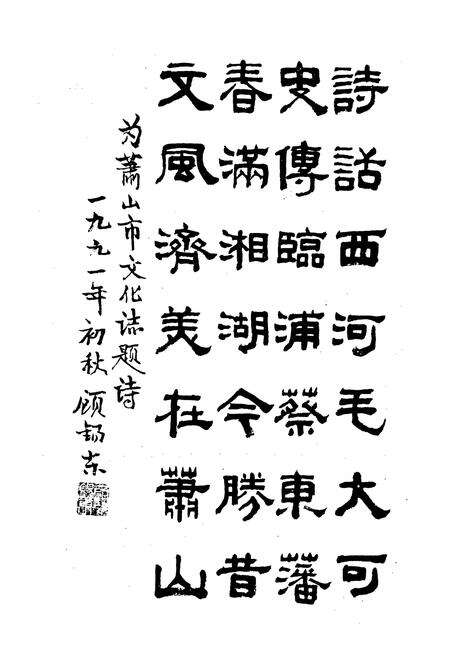 詩話西河毛大可
史傳臨浦蔡東藩
春滿湘湖今勝昔
文風濟美在蕭山
为蕭山市文化誌題诗
一九九一年初秋顾锡东